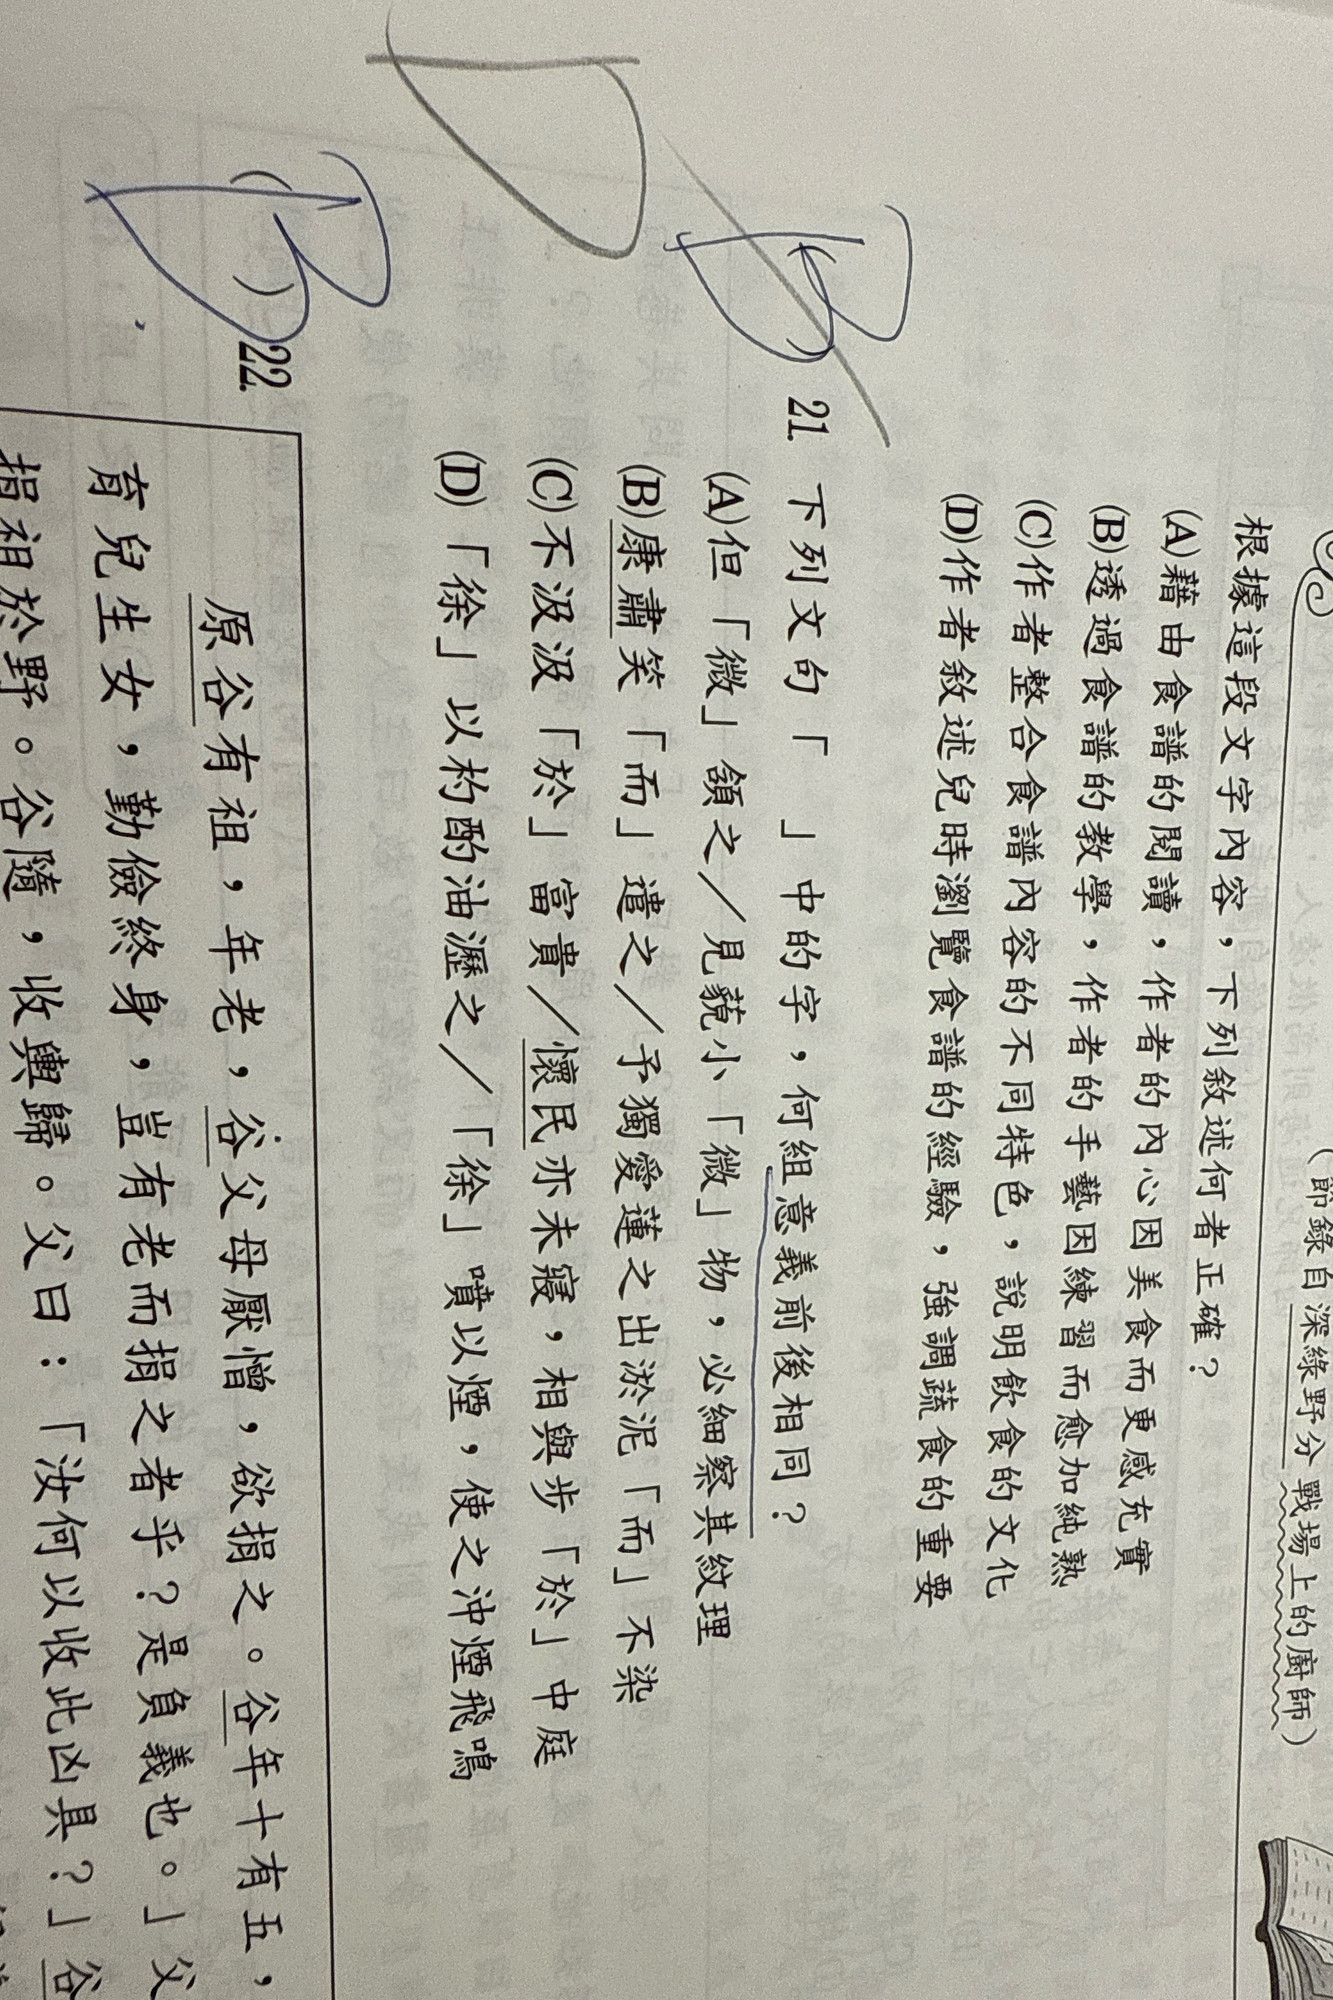 （節錄自深綠野分戰場上的廚師）
根據這段文字內容，下列敘述何者正確？
(A)藉由食譜的閱讀，作者的內心因美食而更感充實
(B)透過食譜的教學，作者的手藝因練習而愈加純熟
(C)作者整合食譜內容的不同特色，說明飲食的文化
(D)作者敘述兒時瀏覽食譜的經驗，強調蔬食的重要
B
D
( )21. 下列文句「　」中的字，何組意義前後相同？
(A)但「微」頷之／見藐小「微」物，必細察其紋理
(B)康肅笑「而」遣之／予獨愛蓮之出淤泥「而」不染
(C)不汲汲「於」富貴／懷民亦未寢，相與步「於」中庭
(D)「徐」以杓酌油瀝之／「徐」噴以煙，使之沖煙飛鳴
B
( )22.
原谷有祖，年老，谷父母厭憎，欲捐之。谷年十有五，
育兒生女，勤儉終身，豈有老而捐之者乎？是負義也。」父
捐祖於野。谷隨，收輿歸。父曰：「汝何以收此凶具？」谷